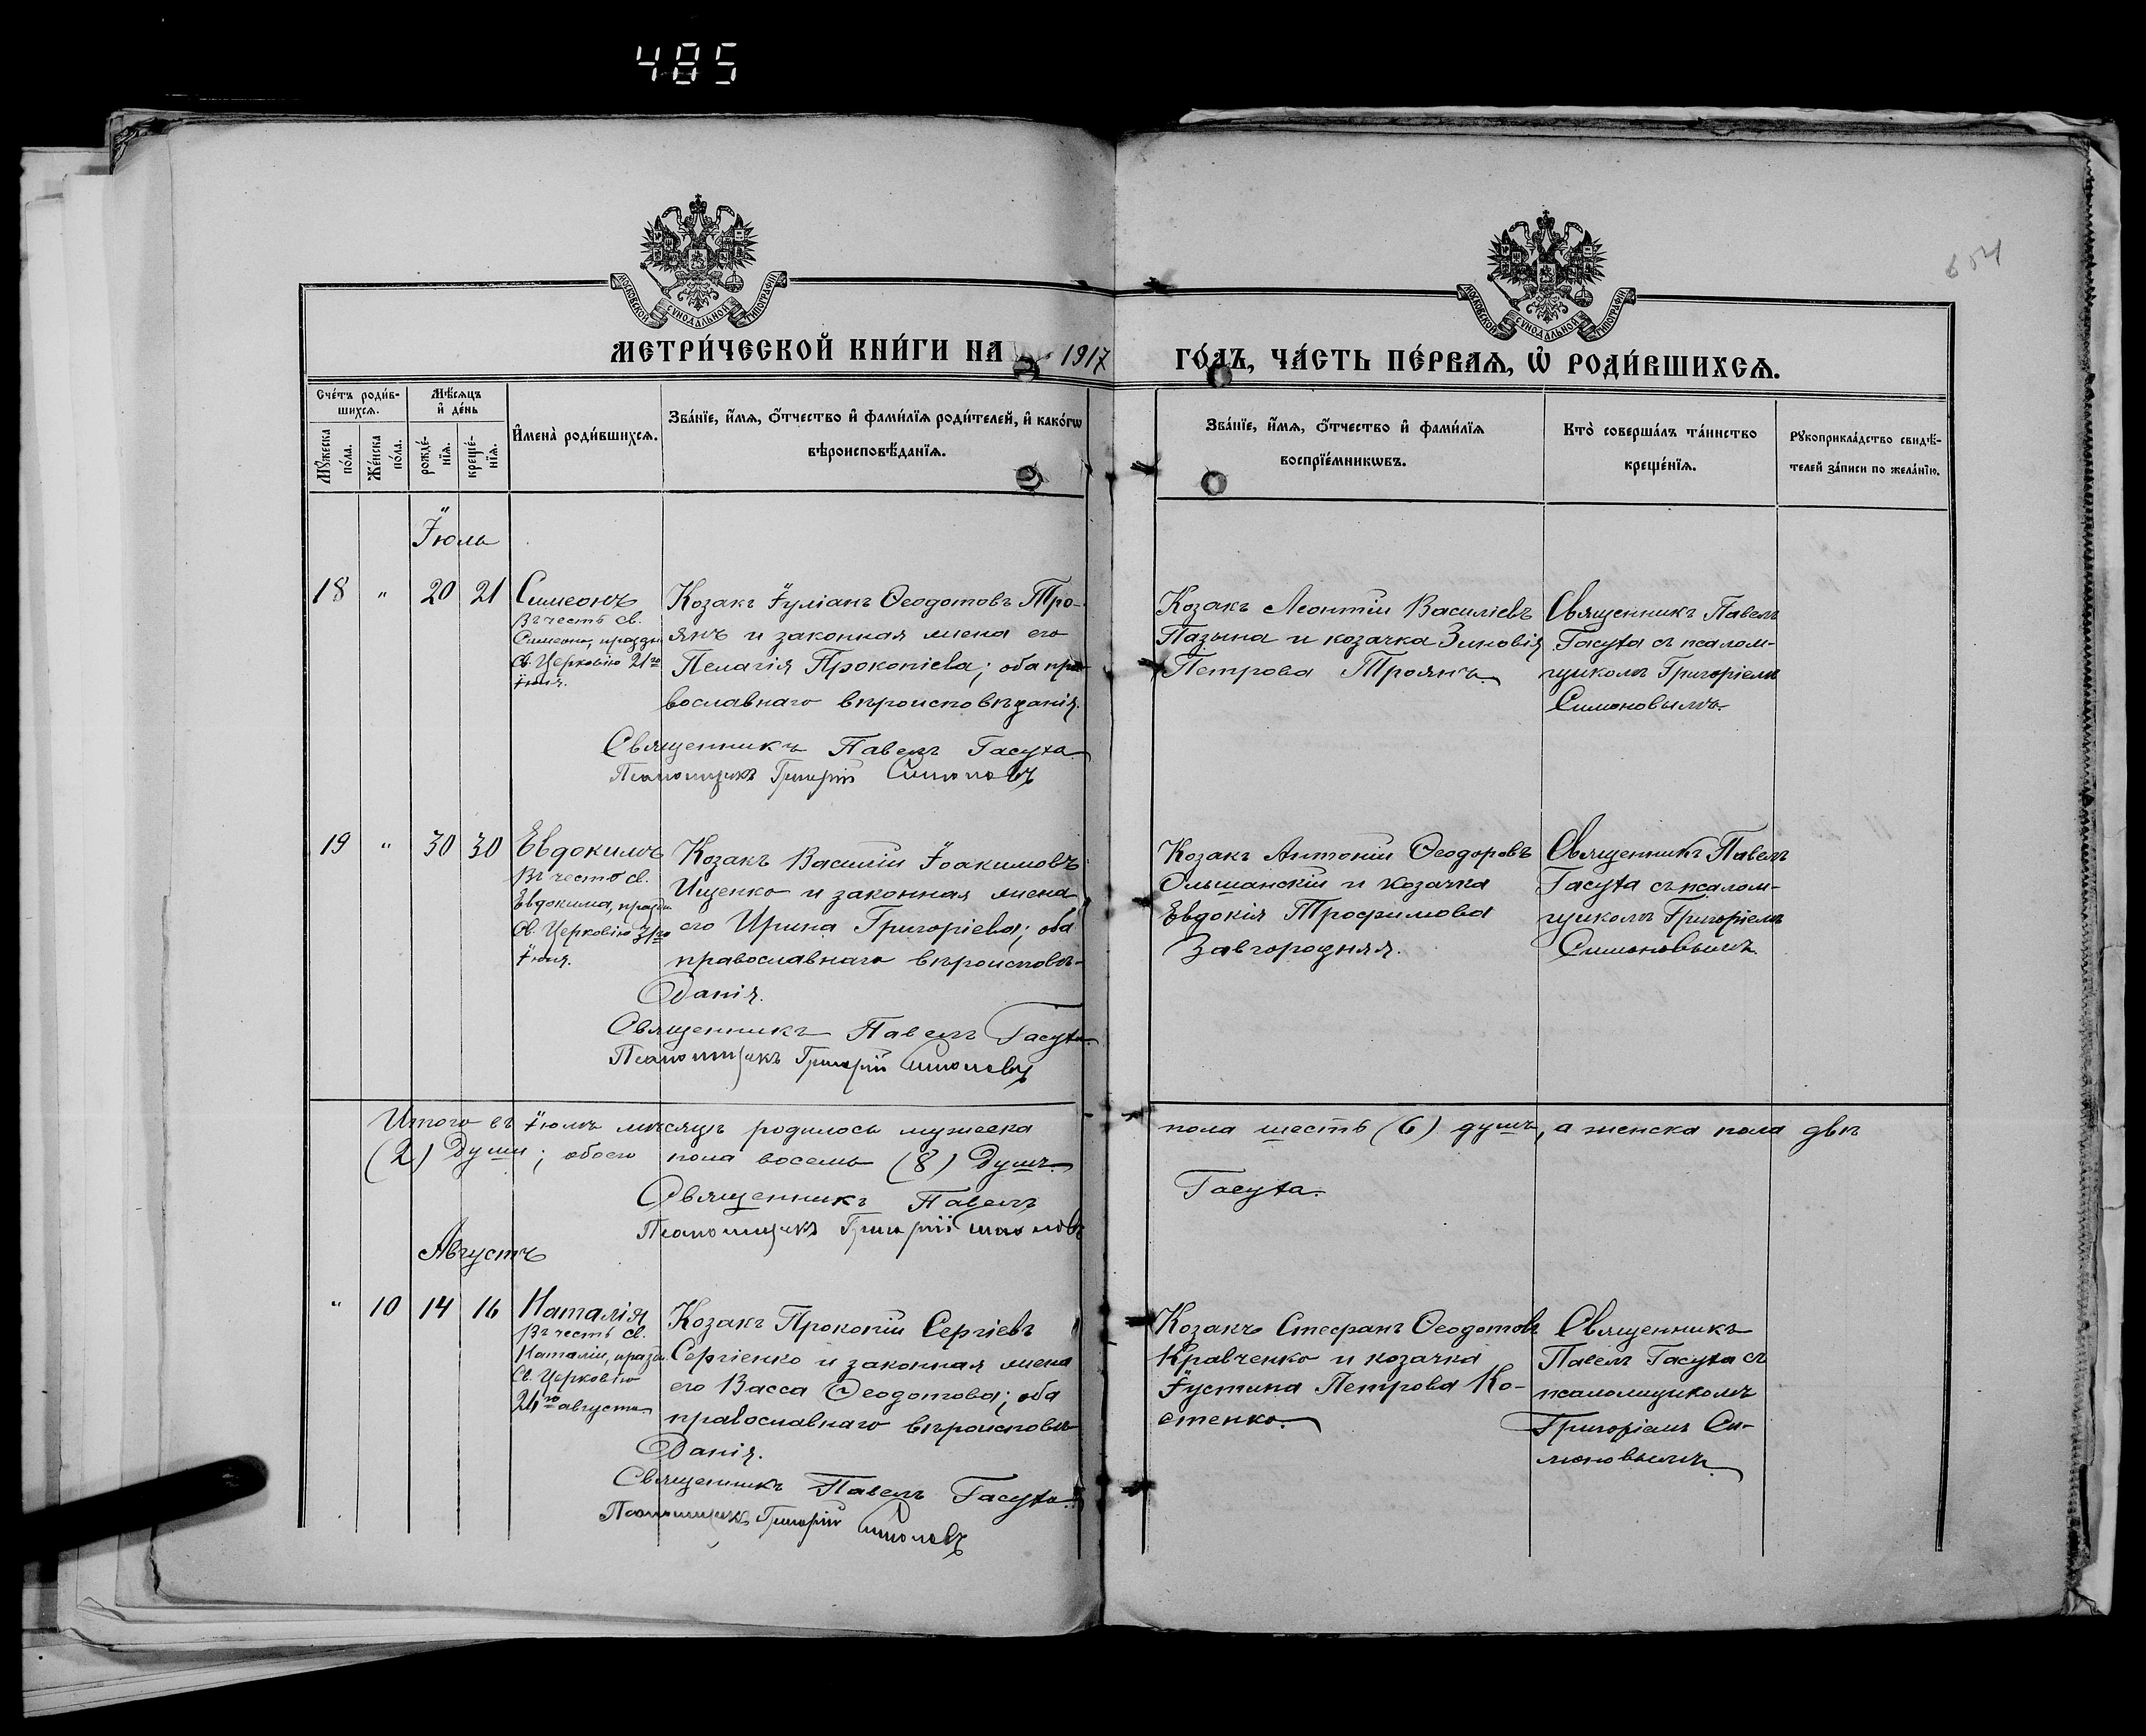 485
604
МОСКОВСКОЙ СУНОДАЛЬНОЙ ТИПОГРАФІИ
МОСКОВСКОЙ СУНОДАЛЬНОЙ ТИПОГРАФІИ
МЕТРИ́ЧЕСКОЙ КНИ́ГИ НА 1917 ГО́ДЪ, ЧА́СТЬ ПЕ́РВАѦ, Ѡ҆ РОДИ́ВШИХСѦ.
Сче́тъ роди́в-
шихсѧ.
Мꙋ́жеска по́ла.
Же́нска по́ла.
Мѣ́сѧцъ и҆ де́нь
рожде́-
нїѧ.
креще́-
нїѧ.
И҆мена̀ роди́вшихсѧ.
Зва́нїе, и҆́мѧ, ѻ҆́тчество и҆ фами́лїѧ роди́телей, и҆ како́гѡ
вѣроисповѣ́данїѧ.
Зва́нїе, и҆́мѧ, ѻ҆́тчество и҆ фами́лїѧ
воспрїе́мникѡвъ.
Кто̀ соверша́лъ та́инство
креще́нїѧ.
Рꙋкоприкла́дство свидѣ́-
телей за́писи по жела́нїю.
Іюль
18 " 20 21
Симеонъ
Въ честь св.
Симеона, праздн.
Св. Церковію 21го
Іюля.
Козакъ Іуліанъ Ѳеодотовъ Тро-
янъ и законная жена его
Пелагія Прокопіева; оба пра-
вославнаго вѣроисповѣданія.
Священникъ Павелъ Гасуха
Псаломщикъ Григорій Симоновъ
Козакъ Леонтій Василіевъ
Пазына и козачка Зиновія
Петрова Троянъ.
Священникъ Павелъ
Гасуха съ псалом-
щикомъ Григоріемъ
Симоновымъ.
19 " 30 30
Евдокимъ
Въ честь св.
Евдокима, праздн.
Св. Церковію 31го
Іюля.
Козакъ Василій Іоакимовъ
Ищенко и законная жена
его Ирина Григоріева; оба
православнаго вѣроисповѣ-
данія.
Священникъ Павелъ Гасуха.
Псаломщикъ Григорій Симоновъ
Козакъ Антоній Ѳеодоровъ
Ольшанскій и козачка
Евдокія Трофимова
Завгородняя.
Священникъ Павелъ
Гасуха съ псалом-
щикомъ Григоріемъ
Симоновымъ.
Итого въ Іюлѣ мѣсяцѣ родилось мужеска пола шесть (6) душъ, а женска пола двѣ
(2) души; обоего пола восемь (8) душъ.
Священникъ Павелъ Гасуха.
Псаломщикъ Григорій Симоновъ
Августъ
" 10 14 16
Наталія
Въ честь св.
Наталіи, праздн.
Св. Церковію
26го августа.
Козакъ Прокопій Сергіевъ
Сергіенко и законная жена
его Васса Ѳеодотова; оба
православнаго вѣроисповѣ-
данія.
Священникъ Павелъ Гасуха.
Псаломщикъ Григорій Симоновъ
Козакъ Стефанъ Ѳеодотовъ
Кравченко и козачка
Іустина Петрова Ко-
стенко.
Священникъ
Павелъ Гасуха съ
псаломщикомъ
Григоріемъ Си-
моновымъ.